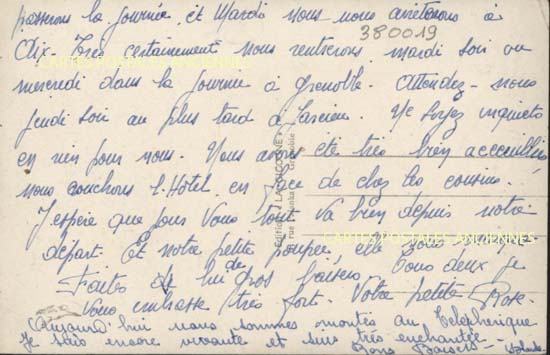 passerons la journée et Mardi nous nous arreterons à
380019
Aix. Très certainement nous rentrerons mardi soir ou
mercredi dans la journée à Grenoble. Attendez-nous
jeudi soir au plus tard à
Ne soyez inquiets
en rien pour nous. Nous avons été très bien acceuillis
nous couchons l'Hôtel en face de chez les cousins.
J'espère que pour Vous tout va bien depuis notre
départ. Et notre petite poupée elle
Faites de lui de gros baisers. Tous deux je
Vous embrasse très fort. Votre petite Rose.
Aujourd'hui nous sommes montés au Telephérique
je suis encore vivante et suis très enchantée
Bons Baisers
Editions "LA CIGOGNE"
CARTES POSTALES ANCIENNES
CARTES POSTALES ANCIENNES